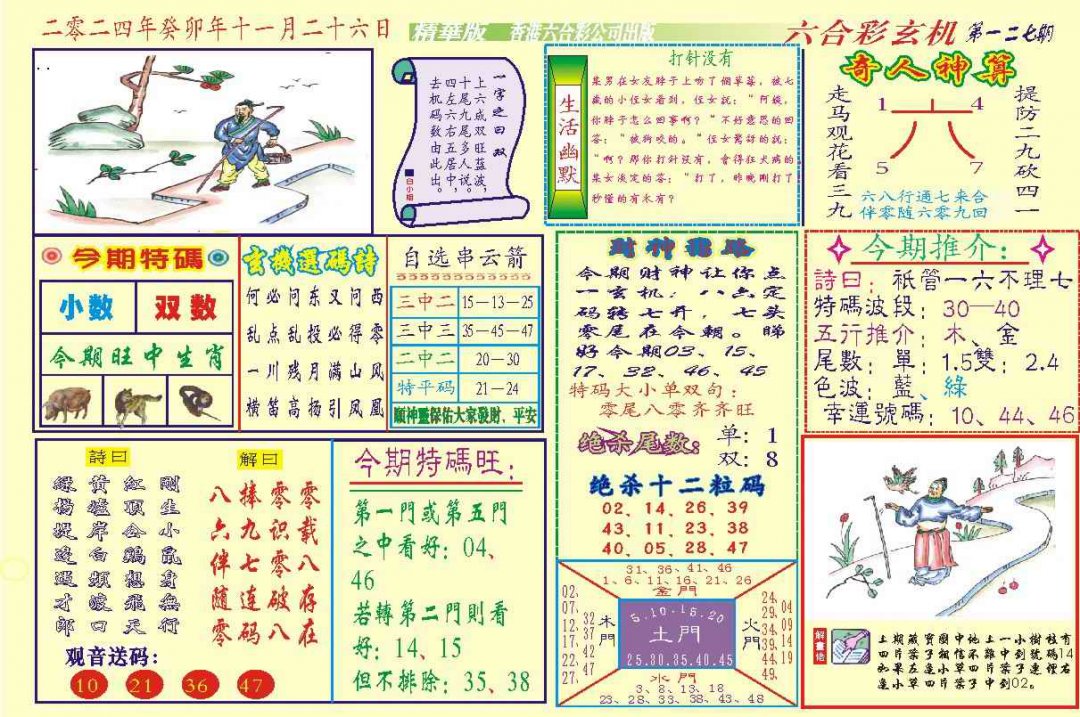 二零二四年癸卯年十一月二十六日
精華版 香港六合彩公司出版
六合彩玄机 第一二七期
一字之曰:双
上六成双旺蓝波,
十尾九右多居中,
四左六尾五人说
去机码数由此出。
白小姐
生活幽默
打针没有
某男在女友脖子上吻了個草莓,被七
歲的小侄女看到,侄女説:“阿姨,
你脖子怎么回事啊?”不好意思的回
答:“被狗咬的。”侄女驚訝的説:
“啊?那你打針没有,會得狂犬病的
某女淡定的答:“打了,昨晚剛打了
秒懂的有木有?
奇人神算
走马观花看三九
提防二九砍四一
1 4
六
5 7
六八行通七来合
伴零随六零九回
今期特碼
小数 双数
今期旺中生肖
玄機選碼詩
何必问东又问西
乱点乱投必得零
一川残月满山风
横笛高扬引凤凰
自选串云箭
三中二 15—13—25
三中三 35—45—47
二中二 20—30
特平码 21—24
願神靈保佑大家發財、平安
財神指路
今期财神让你点
一玄机,八六定
码转七开,七头
零尾在今朝。睇
好今期03、15、
17、32、46、45
特码大小单双句:
零尾八零齐齐旺
绝杀尾数: 单:1
双:8
绝杀十二粒码
02、14、26、39
43、11、23、38
40、05、28、47
今期推介:
詩曰:祇管一六不理七
特碼波段:30—40
五行推介:木、金
尾數:單:1.5雙:2.4
色波:藍、綠
幸運號碼:10、44、46
詩曰
剛生小鼠身無行
紅頂公鷄想飛天
黄墟岸白頻渡口
綠楊堤邊遇才郎
解曰
零载八存在
零识零破八
捧九七连码
八六伴随零
观音送码:
10 21 36 47
今期特碼旺:
第一門或第五門
之中看好:04、
46
若轉第二門則看
好:14、15
但不排除:35、38
31、36、41、46
1、6、11、16、21、26
金門
02、07、12、17、22、27
32、37、42、47
木門
5.10.15.20
土門
25.30.35.40.45
火門
24、29、34、39、44、49
04、09、14、19
水門
3、8、13、18
23、28、33、38、43、48
解畫佬
上期藏寶圖中地上一小樹枝有
四片葉子相信不難中到號碼14
如果左邊小草四片葉子連埋右
邊小草四片葉子中到02。